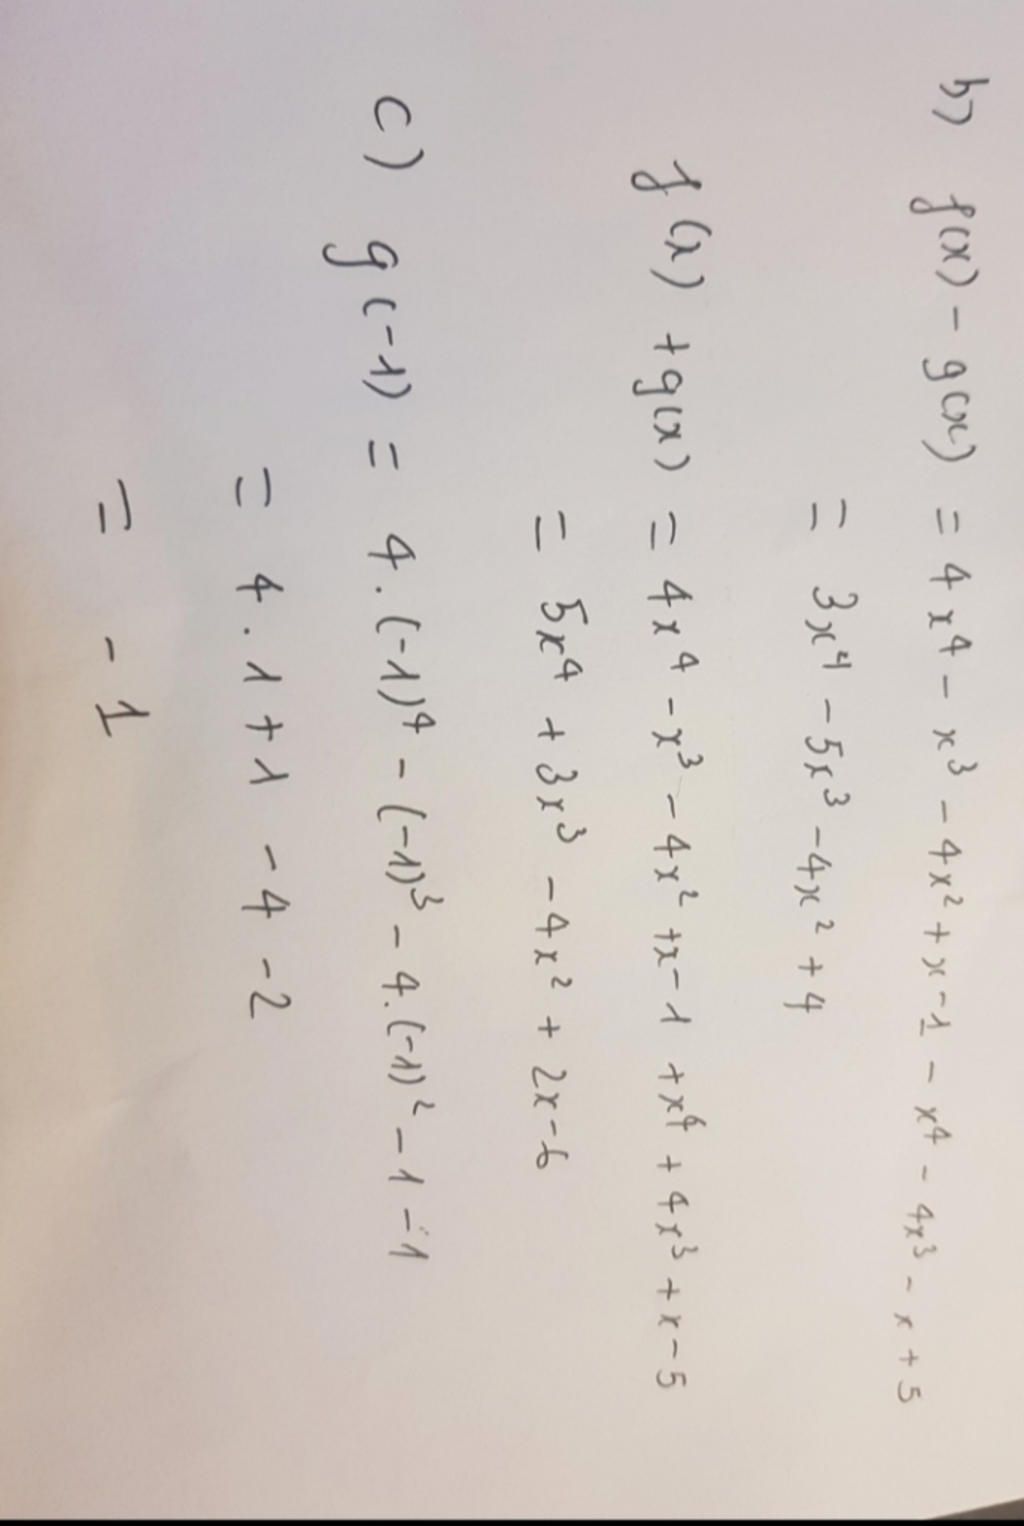 b) f(x) - g(x) = 4x⁴ - x³ - 4x² + x - 1 - x⁴ - 4x³ - x + 5
= 3x⁴ - 5x³ - 4x² + 4
f(x) + g(x) = 4x⁴ - x³ - 4x² + x - 1 + x⁴ + 4x³ + x - 5
= 5x⁴ + 3x³ - 4x² + 2x - 6
c) g(-1) = 4.(-1)⁴ - (-1)³ - 4.(-1)² - 1 - 1
= 4.1 + 1 - 4 - 2
= - 1